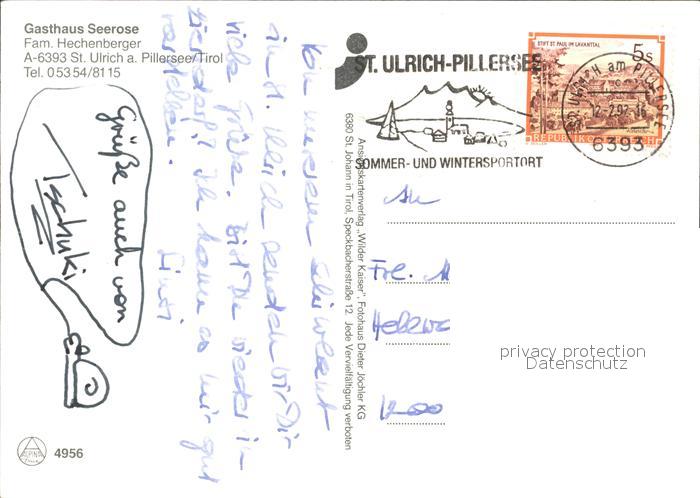 Gasthaus Seerose
Fam. Hechenberger
A-6393 St. Ulrich a. Pillersee/Tirol
Tel. 05354/8115
Grüße auch von
Tschuki
Von unserem
in St. Ulrich senden wir Dir
viele Grüße. Bist Du wieder in
Ich kann es mir gut
vorstellen.
4956
Ansichtskartenverlag „Wilder Kaiser", Fotohaus Dieter Jöchler KG
6380 St. Johann in Tirol, Speckbacherstraße 12. Jede Vervielfältigung verboten
ST. ULRICH-PILLERSEE
SOMMER- UND WINTERSPORTORT
STIFT ST. PAUL IM LAVANTTAL
5s
REPUBLIK
ST. ULRICH am PILLERSEE
6393
An
Frl. M
1200
privacy protection
Datenschutz